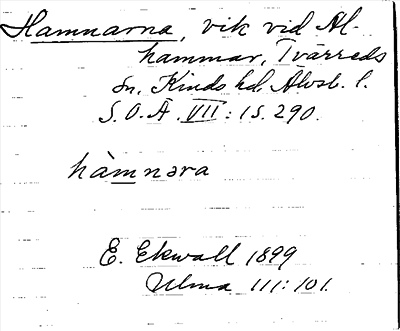 Hamnarna, vik vid Al-
hammar, Tvärreds
sn, Kinds hd. Älvsb. l.
S.O.Ä. VII:1 s. 290.
hàmnəra
E. Ekwall 1899
Ulma 111:101.